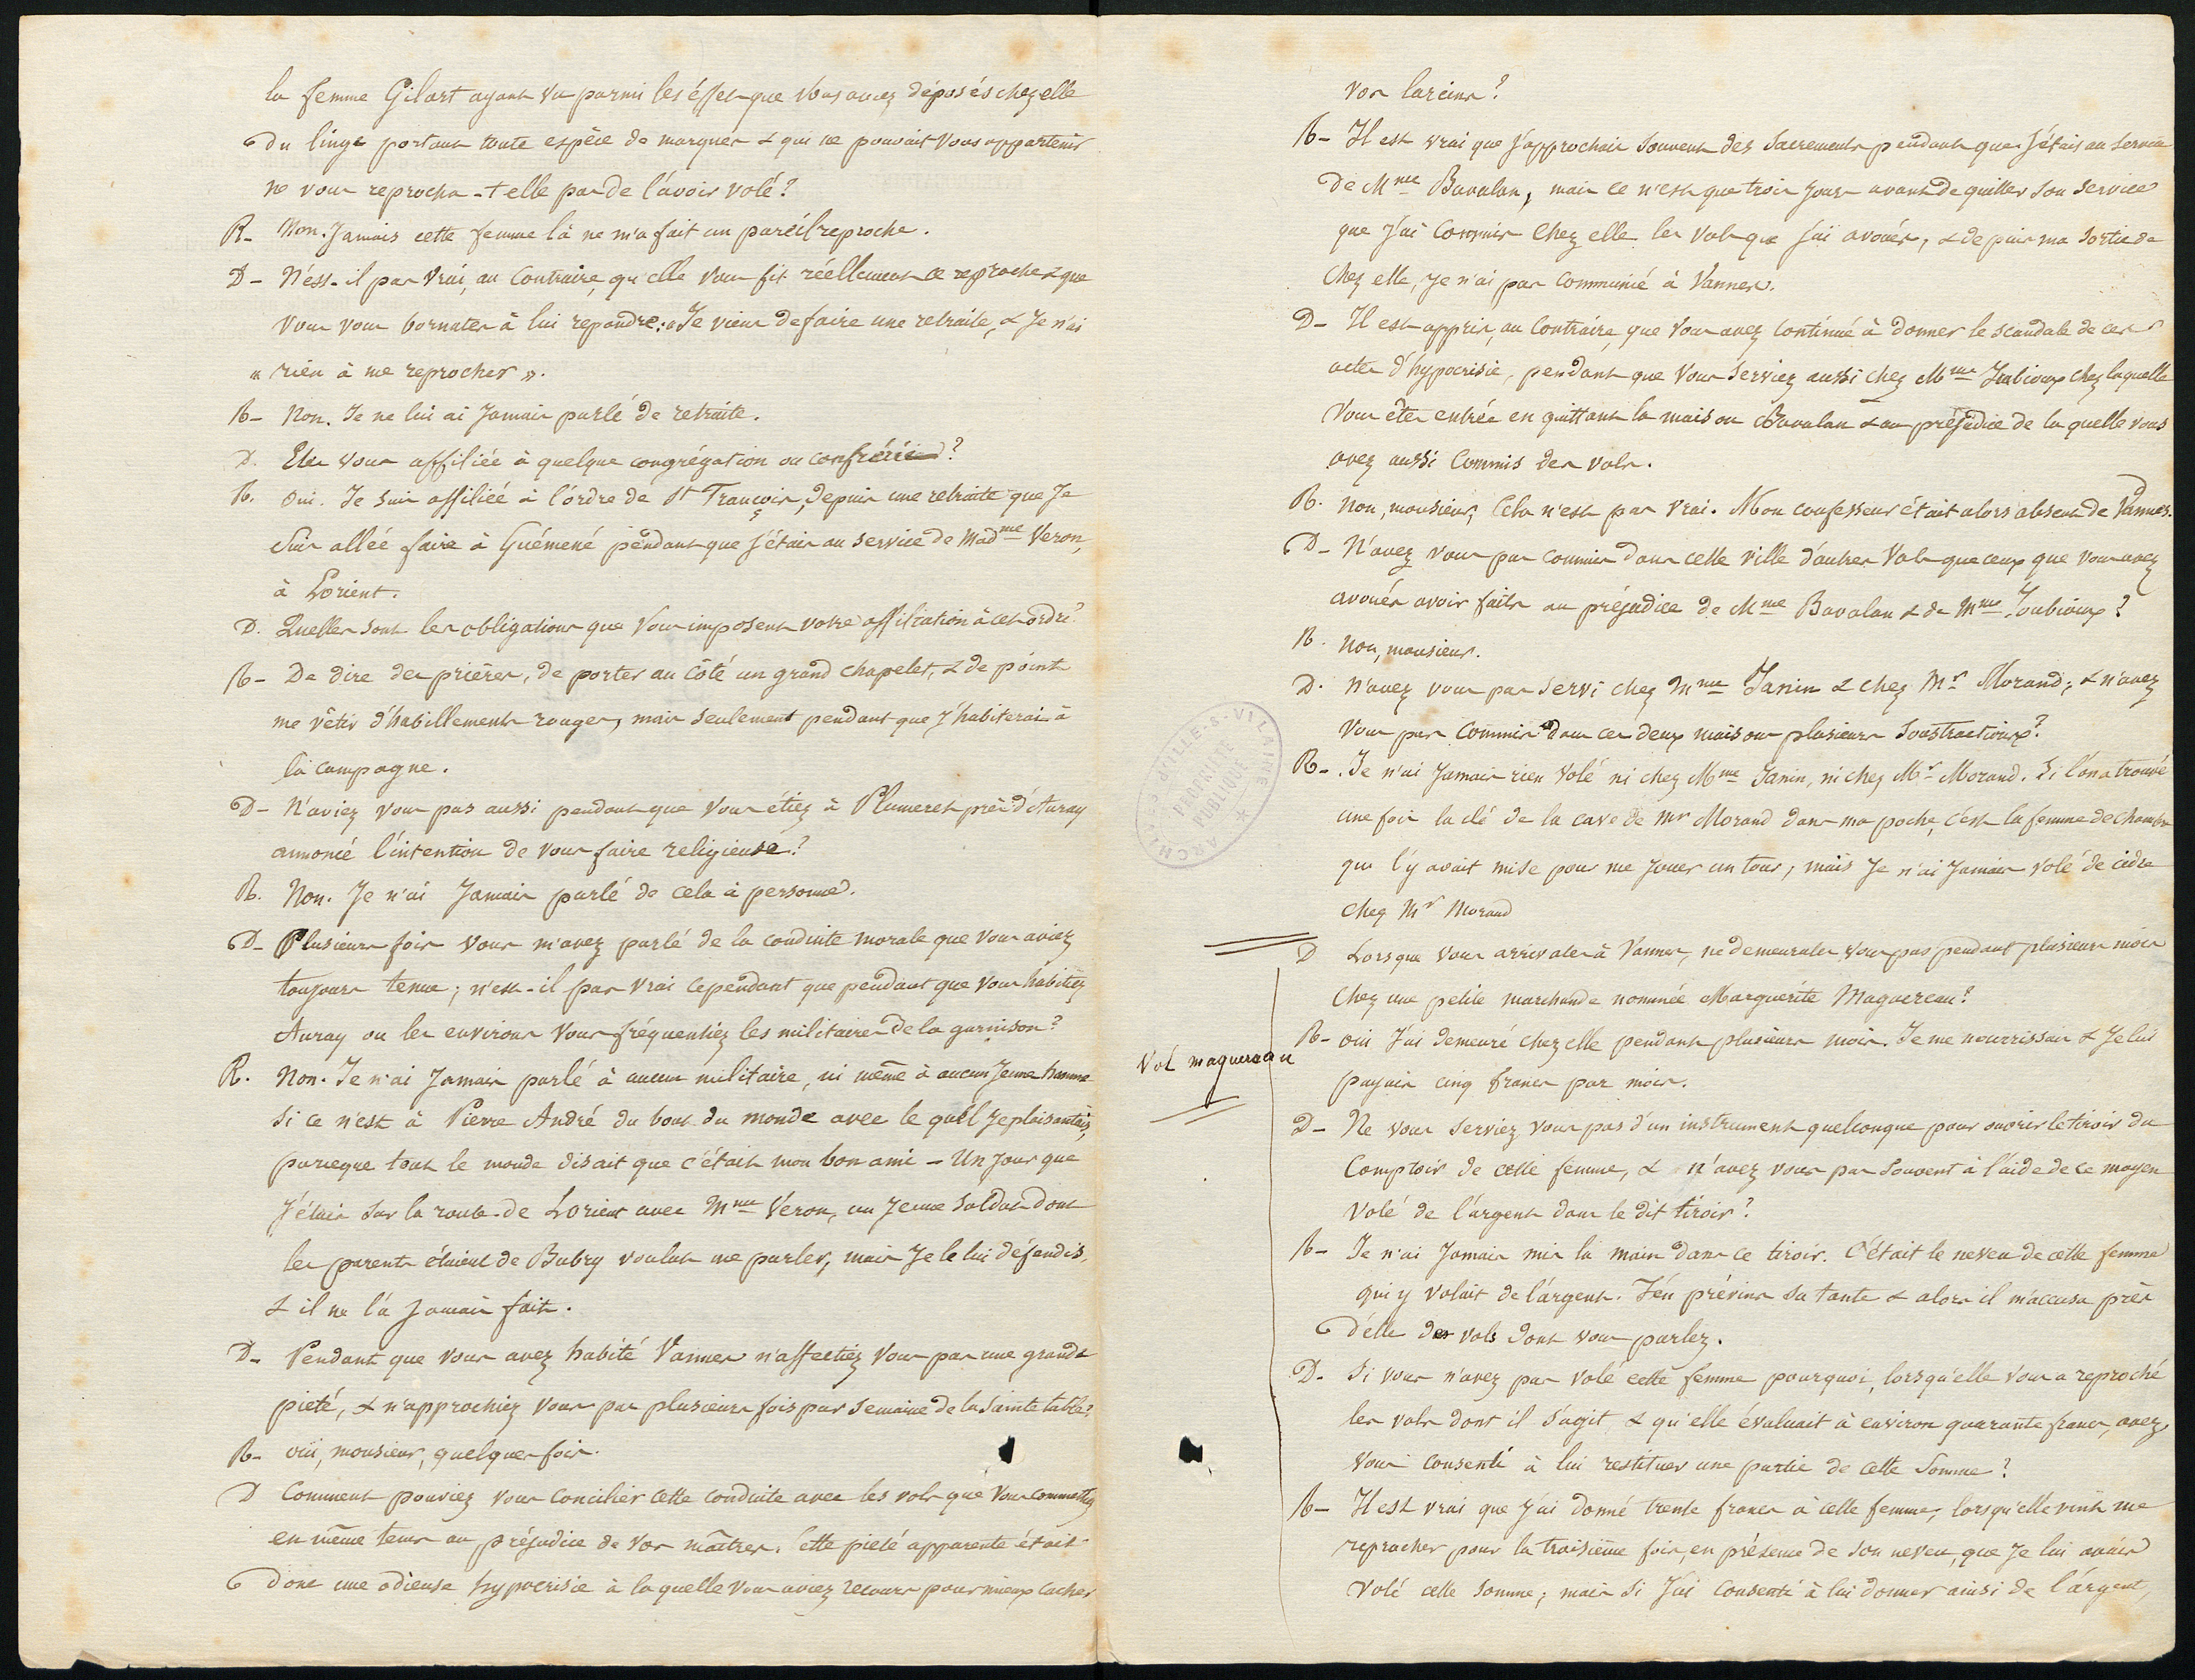 la femme Gilart ayant vu parmi les éffets que vous aviez déposés chez elle
du linge portant toute espèce de marques & qui ne pouvait vous appartenir
ne vous reprocha-t elle pas de l'avoir volé?
R- Non. Jamais cette femme là ne m'a fait un pareil reproche.
D- N'est-il pas vrai, au contraire, qu'elle vous fit réellement ce reproche & que
vous vous bornates à lui repondre: « Je viens de faire une retraite, & Je n'ai
« rien à me reprocher ».
R- Non. Je ne lui ai Jamais parlé de retraite.
D. Etes vous affiliée à quelque congrégation ou confrérie?
R. oui. Je suis affiliée à l'ordre de St François, depuis une retraite que Je
suis allée faire à Guémené pendant que J'étais au service de Madme Veron,
à Lorient.
D. Quelles sont les obligations que vous imposent votre affiliation à cet ordre?
R- De dire des prières, de porter au côté un grand chapelet, & de point
me vêtir d'habillements rouges, mais seulement pendant que J'habiterai à
la campagne.
D- N'aviez vous pas aussi pendant que vous étiez à Plumeret près d'Auray
annoncé l'intention de vous faire religieuse?
R. Non. Je n'ai Jamais parlé de cela à personne.
D- Plusieurs fois vous m'avez parlé de la conduite morale que vous aviez
toujours tenue; n'est-il pas vrai cependant que pendant que vous habitiez
Auray ou les environs vous fréquentiez les militaires de la garnison?
R. Non. Je n'ai Jamais parlé à aucun militaire, ni même à aucun Jeune homme
si ce n'est à Pierre André du bout du monde avec le quel Je plaisantais,
parceque tout le monde disait que c'était mon bon ami - Un Jour que
J'étais sur la route de Lorient avec Mme Véron, un Jeune soldat dont
les parents étaient de Bubry voulut me parler, mais Je le lui défendis,
& il ne l'a Jamais fait.
D- Pendant que vous avez habité Vannes n'affectiez vous pas une grande
pieté, & n'approchiez vous pas plusieurs fois par semaine de la sainte table?
R- oui, monsieur, quelques fois.
D Comment pouviez vous concilier cette conduite avec les vols que vous commettiez
en même tems au préjudice de vos maîtres. Cette pieté apparente était
donc une odieuse hypocrisie à laquelle vous aviez recours pour mieux cacher
vos larcins?
R- Il est vrai que J'approchais souvent des sacrements pendant que J'étais au service
de Mme Bavalan, mais ce n'est que trois Jours avant de quitter son service
que J'ai commis chez elle les vols que J'ai avoués, & depuis ma sortie de
chez elle, Je n'ai pas communié à Vannes.
D- Il est appris, au contraire, que vous avez continué à donner le scandale de ces
actes d'hypocrisie, pendant que vous serviez aussi chez Mme Joubioux chez laquelle
vous êtes entrée en quittant la maison Bavalan & au préjudice de la quelle vous
avez aussi commis des vols.
R. Non, monsieur, cela n'est pas vrai. Mon confesseur était alors absent de Vannes.
D- N'avez vous pas commis dans cette ville d'autres vols que ceux que vous avez
avoués avoir faits au préjudice de Mme Bavalan & de Mme Joubioux?
R. Non, monsieur.
D. N'avez vous pas servi chez Mme Janin & chez Mr Morand; & n'avez
vous pas commis dans ces deux maisons plusieurs soustractions?
R-. Je n'ai Jamais rien volé ni chez Mme Janin, ni chez Mr Morand. Si l'on a trouvé
une fois la clé de la cave de Mr Morand dans ma poche, c'est la femme de chambre
qui l'y avait mise pour me jouer un tour; mais Je n'ai Jamais volé de cidre
chez Mr Morand
D Lorsque vous arrivates à Vannes, ne demeurates vous pas pendant plusieurs mois
chez une petite marchande nommée Marguerite Maguereau?
R- oui J'ai demeuré chez elle pendant plusieurs mois. Je me nourrissais & Je lui
Vol maguereau
payais cinq francs par mois.
D- Ne vous serviez vous pas d'un instrument quelconque pour ouvrir le tiroir du
comptoir de cette femme, & n'avez vous pas souvent à l'aide de ce moyen
volé de l'argent dans le dit tiroir?
R- Je n'ai Jamais mis la main dans ce tiroir. C'était le neveu de cette femme
qui y volait de l'argent. J'en prévins sa tante & alors il m'accusa près
d'elle des vols dont vous parlez.
D. Si vous n'avez pas volé cette femme pourquoi, lorsqu'elle vous a reproché
les vols dont il s'agit & qu'elle évaluait à environ quarante francs, avez
vous consenti à lui restituer une partie de cette somme?
R- Il est vrai que J'ai donné trente francs à cette femme, lorsqu'elle vint me
reprocher pour la troisième fois, en présence de son neveu, que Je lui avais
volé cette somme; mais si J'ai consenti à lui donner ainsi de l'argent,
ARCHIVES D'ILLE-&-VILAINE
PROPRIÉTÉ
PUBLIQUE